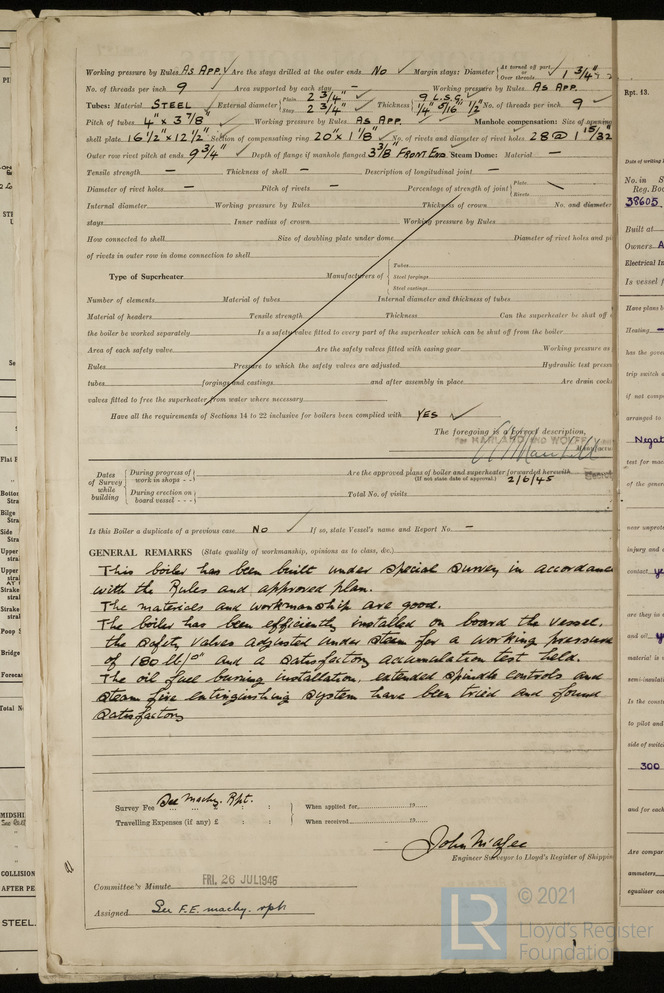 Working pressure by Rules As App. ✓ Are the stays drilled at the outer ends No ✓ Margin stays: Diameter { At turned off part, or Over threads 1 3/4"
No. of threads per inch 9 Area supported by each stay — Working pressure by Rules As App.
Tubes: Material STEEL ✓ External diameter { Plain 2 3/4" Stay 2 3/4" ✓ Thickness { 9 L.S.G. 1/4" 5/16" 1/2" No. of threads per inch 9 ✓
Pitch of tubes 4" x 3 7/8" ✓ Working pressure by Rules As App. ✓ Manhole compensation: Size of opening
shell plate 16 1/2" x 12 1/2" Section of compensating ring 20" x 1 1/8" ✓ No. of rivets and diameter of rivet holes 28 @ 1 15/32
Outer row rivet pitch at ends 9 3/4" ✓ Depth of flange if manhole flanged 3 3/8" FRONT END Steam Dome: Material —
Tensile strength — Thickness of shell — Description of longitudinal joint —
Diameter of rivet holes — Pitch of rivets — Percentage of strength of joint { Plate Rivets
Internal diameter Working pressure by Rules Thickness of crown No. and diameter
stays Inner radius of crown Working pressure by Rules
How connected to shell Size of doubling plate under dome Diameter of rivet holes and pi
of rivets in outer row in dome connection to shell
Type of Superheater Manufacturers of { Tubes Steel forgings Steel castings
Number of elements Material of tubes Internal diameter and thickness of tubes
Material of headers Tensile strength Thickness Can the superheater be shut off
the boiler be worked separately Is a safety valve fitted to every part of the superheater which can be shut off from the boiler
Area of each safety valve Are the safety valves fitted with easing gear Working pressure as
Rules Pressure to which the safety valves are adjusted Hydraulic test pressure
tubes forgings and castings and after assembly in place Are drain cocks
valves fitted to free the superheater from water where necessary
Have all the requirements of Sections 14 to 22 inclusive for boilers been complied with YES ✓
The foregoing is a correct description,
For HARLAND AND WOLFF
Dates of Survey while building { During progress of work in shops - - Are the approved plans of boiler and superheater forwarded herewith
(If not state date of approval.) 2/6/45
During erection on board vessel - - - Total No. of visits
Is this Boiler a duplicate of a previous case No ✓ If so, state Vessel's name and Report No. —
GENERAL REMARKS (State quality of workmanship, opinions as to class, &c.)
This boiler has been built under special survey in accordance
with the Rules and approved plan.
The materials and workmanship are good.
The boiler has been efficiently installed on board the vessel,
the safety valves adjusted under steam for a working pressure
of 180 lb/□" and a satisfactory accumulation test held.
The oil fuel burning installation, extended spindle controls and
steam fire extinguishing system have been tried and found
satisfactory
Survey Fee See Machy. Rpt. : : When applied for 19
Travelling Expenses (if any) £ : : When received 19
John McAfee
Engineer Surveyor to Lloyd's Register of Shipping
Committee's Minute FRI. 26 JUL 1946
Assigned See F.E. machy. rpt.
Rpt. 13.
Date of writing
No. in
Reg. Boo
38605
Built at
Owners A
Electrical In
Is vessel f
Have plans b
Heating —
has the gove
trip switch a
if not compo
arranged to
Negat
test for mach
of the gener
near unprote
injury and d
contact ye
are they in a
and oil y
material is a
semi-insulati
Is the const
to pilot and
side of switc
300
and for each
Are compar
ammeters
equaliser con
STEEL.
© 2021
LR
Lloyd's Register
Foundation